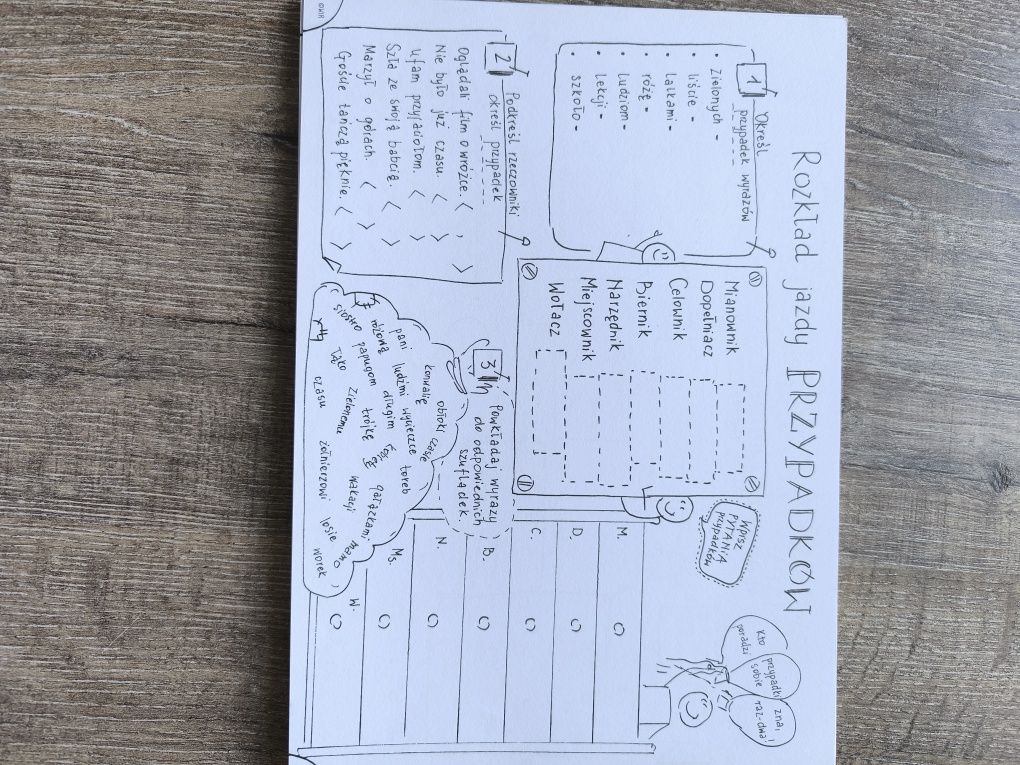 Rozkład jazdy PRZYPADKÓW
1
Określ
przypadek wyrazów
• zielonych -
• liście -
• lalkami -
• różę -
• ludziom -
• lekcji -
• szkoło -
Mianownik
Dopełniacz
Celownik
Biernik
Narzędnik
Miejscownik
Wołacz
Wpisz
PYTANIA
przypadków
Kto
przypadki
zna,
poradzi
sobie
raz-dwa!
2
Podkreśl rzeczowniki
określ przypadek
Oglądali film o wróżce. ( , )
Nie było już czasu. ( )
Ufam przyjaciołom. ( )
Szła ze swoją babcią. ( )
Marzył o górach. ( )
Goście tańczą pięknie. ( )
3
Powkładaj wyrazy
do odpowiednich
szufladek.
konwalię obłoki
pani ludźmi wycieczce toreb
różową długim trójkę gałązkami
siostro papugom wakacji
tato zielonemu żołnierzowi losie
czasu worek
M.
D.
C.
B.
N.
Ms.
W.
©WiR